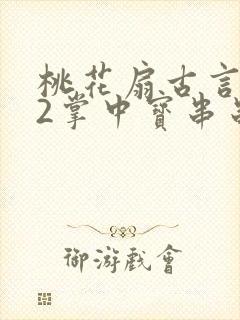 桃花扇古言
2掌中寳串
御游戲會